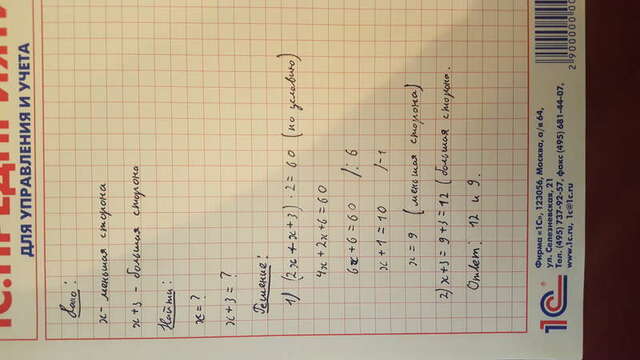 1С:ПРЕДПРИЯТИ
ДЛЯ УПРАВЛЕНИЯ И УЧЕТА
Дано:
x - меньшая сторона
x+3 - большая сторона
Найти:
x = ?
x+3 = ?
Решение:
1) (2x + x+3) · 2 = 60 (по условию)
4x + 2x + 6 = 60
6x + 6 = 60 /: 6
x + 1 = 10 /-1
x = 9 (меньшая сторона)
2) x+3 = 9+3 = 12 (большая сторона.
Ответ: 12 и 9.
1С
Фирма «1С», 123056, Москва, а/я 64,
ул. Селезневская, 21
Тел. (495) 737-92-57, факс (495) 681-44-07,
www.1c.ru, 1c@1c.ru
2 900000 00